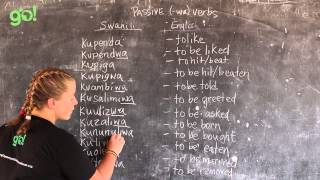 go!
Passive (-wa) verbs
Swahili English
Kupenda - to like
Kupendwa - to be liked
Kupiga - to hit/beat
Kupigwa - to be hit/beaten
Kuambiwa - to be told
Kusalimiwa - to be greeted
Kuulizwa - to be asked
Kuzaliwa - to be born
Kununuliwa - to be bought
- to be eaten
- to be married
- to be removed
go!